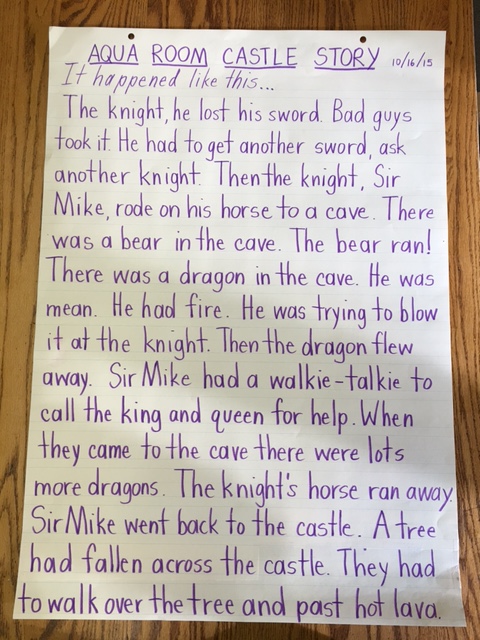 AQUA ROOM CASTLE STORY 10/16/15
It happened like this...
The knight, he lost his sword. Bad guys
took it. He had to get another sword, ask
another knight. Then the knight, Sir
Mike, rode on his horse to a cave. There
was a bear in the cave. The bear ran!
There was a dragon in the cave. He was
mean. He had fire. He was trying to blow
it at the knight. Then the dragon flew
away. Sir Mike had a walkie-talkie to
call the king and queen for help. When
they came to the cave there were lots
more dragons. The knight's horse ran away.
Sir Mike went back to the castle. A tree
had fallen across the castle. They had
to walk over the tree and past hot lava.